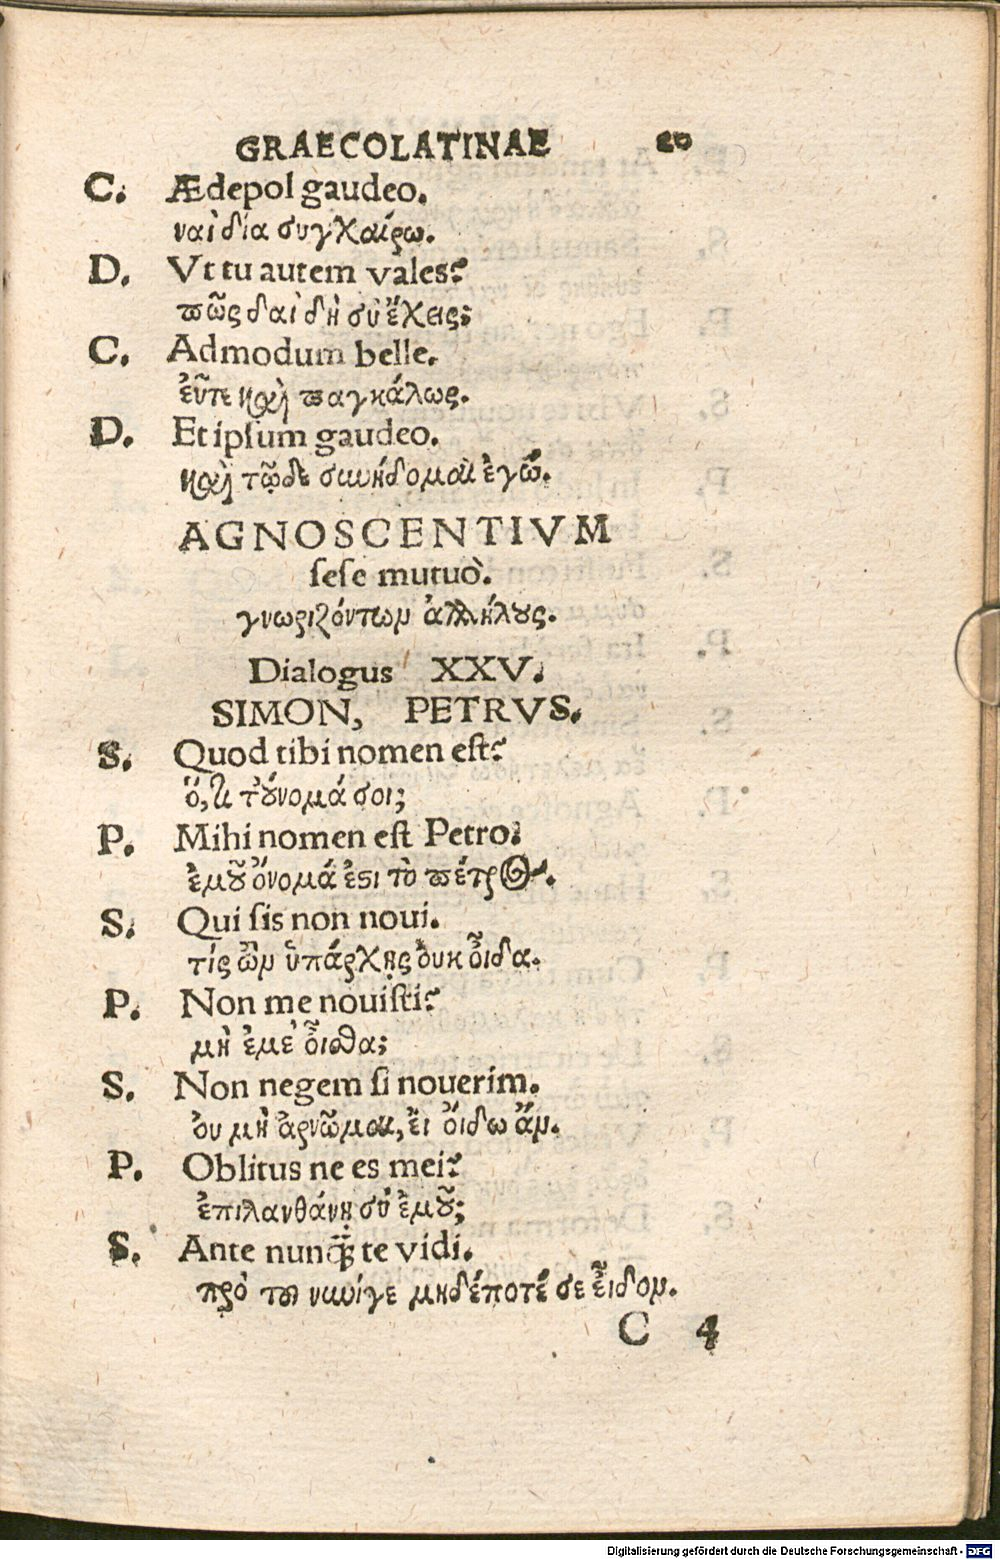 GRAECOLATINAE 20
C. Ædepol gaudeo.
ναὶ δία συγχαίρω.
D. Vt tu autem vales?
πῶς δαὶ δὴ σὺ ἔχεις;
C. Admodum belle.
ἐῦτε καὶ παγκάλως.
D. Et ipsum gaudeo.
καὶ τῷδε συνήδομαι ἐγώ.
AGNOSCENTIVM
sese mutuò.
γνωριζόντων ἀλλήλους.
Dialogus XXV.
SIMON, PETRVS.
S. Quod tibi nomen est?
ὅ,τι τοὔνομά σοι;
P. Mihi nomen est Petro.
ἐμοῦ ὄνομά ἐστι τὸ πέτρος.
S. Qui sis non noui.
τίς ὢν ὑπάρχῃς ὀυκ οἶδα.
P. Non me nouisti?
μὴ ἐμὲ οἶσθα;
S. Non negem si nouerim.
ου μὴ ἀρνῶμαι, ἔι ὄιδω ἄν.
P. Oblitus ne es mei?
ἐπιλανθάνῃ σύ ἐμοῦ;
S. Ante nunq̃ te vidi.
πρὸ τοῦ νυνίγε μηδέποτέ σε εἶδον.
C 4